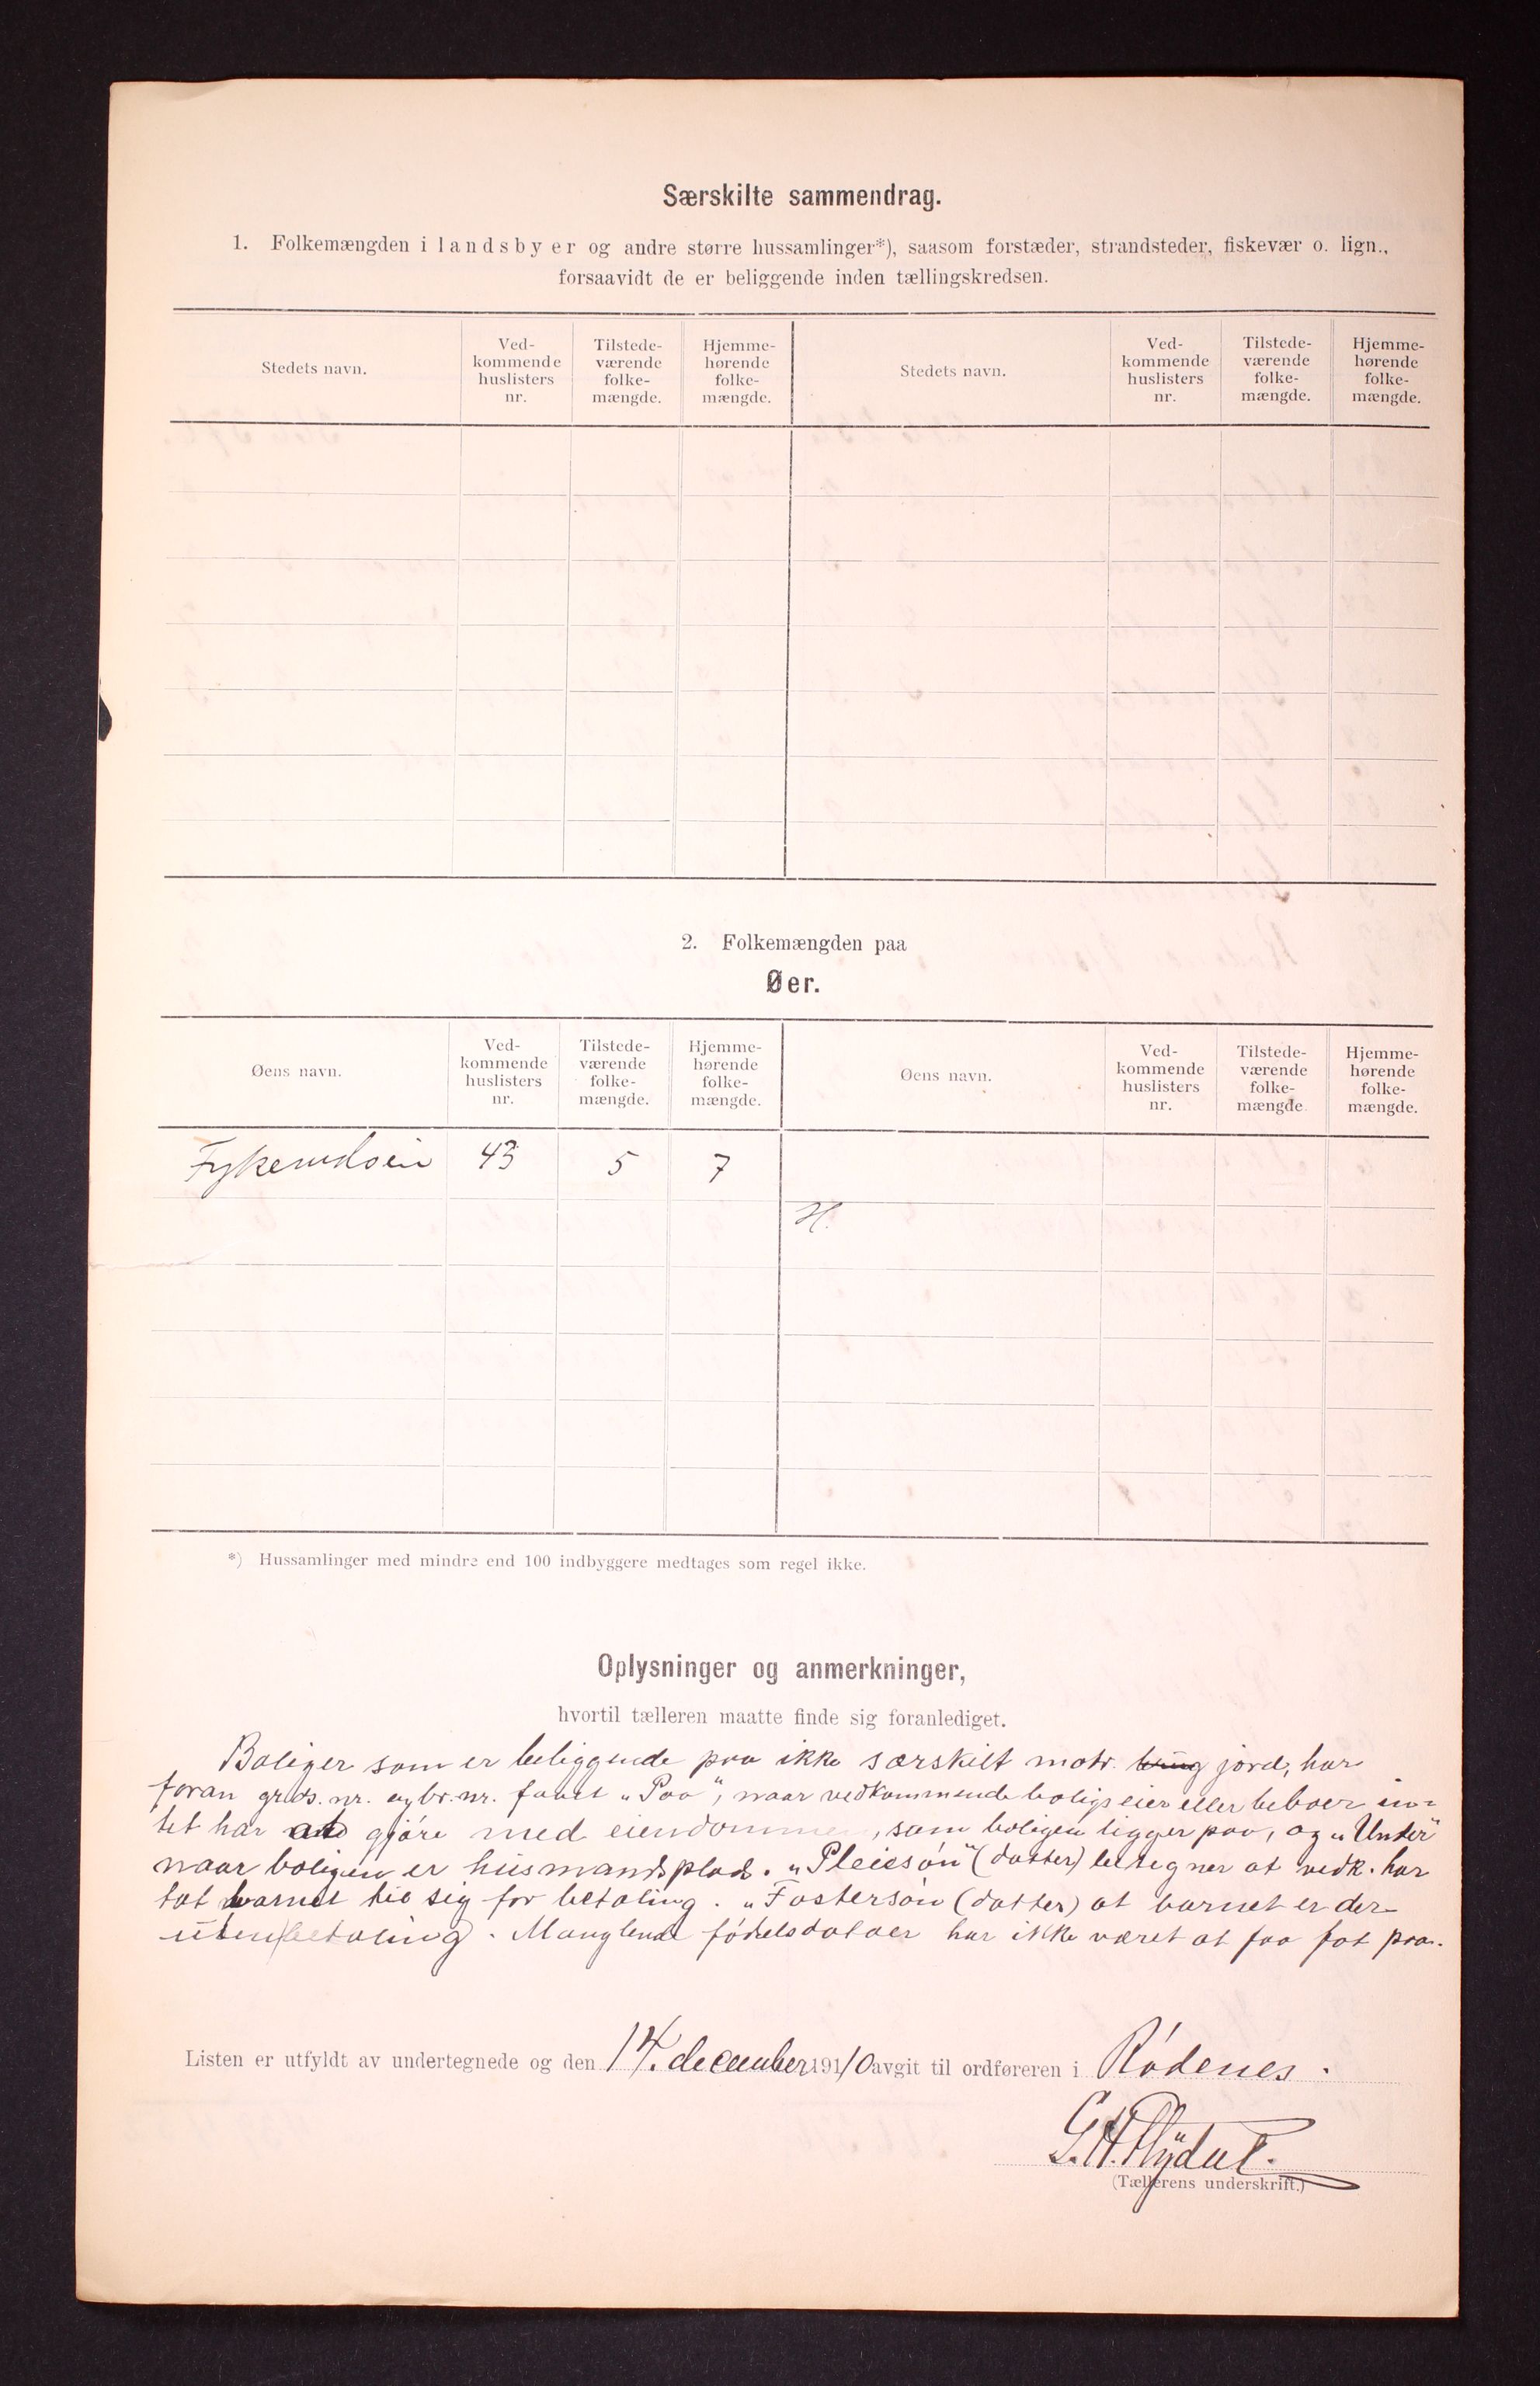 Særskilte sammendrag.
1. Folkemængden i landsbyer og andre større hussamlinger*), saasom forstæder, strandsteder, fiskevær o. lign.,
forsaavidt de er beliggende inden tællingskredsen.
Stedets navn. Ved-kommende huslisters nr. Tilstede-værende folke-mængde. Hjemme-hørende folke-mængde. Stedets navn. Ved-kommende huslisters nr. Tilstede-værende folke-mængde. Hjemme-hørende folke-mængde.
2. Folkemængden paa
Øer.
Øens navn. Ved-kommende huslisters nr. Tilstede-værende folke-mængde. Hjemme-hørende folke-mængde. Øens navn. Ved-kommende huslisters nr. Tilstede-værende folke-mængde Hjemme-hørende folke-mængde.
43 5 7
H.
*) Hussamlinger med mindre end 100 indbyggere medtages som regel ikke.
Oplysninger og anmerkninger,
hvortil tælleren maatte finde sig foranlediget.
Boliger som er beliggende paa ikke særskilt matr. jord, har
foran grds. nr. og br. nr. faaet „Paa", naar vedkommende boligs eier eller beboer in-
tet har at gjøre med eiendommen, som boligen ligger paa, og „Under"
naar boligen er husmandsplads. „Pleiesøn" (datter) betegner at vedk. har
tat barnet til sig for betaling. „Fostersøn (datter) at barnet er der
uten betaling. Manglende fødselsdatoer har ikke været at faa fat paa.
Listen er utfyldt av undertegnede og den 14. december 1910 avgit til ordføreren i Rødenes.
(Tællerens underskrift.)